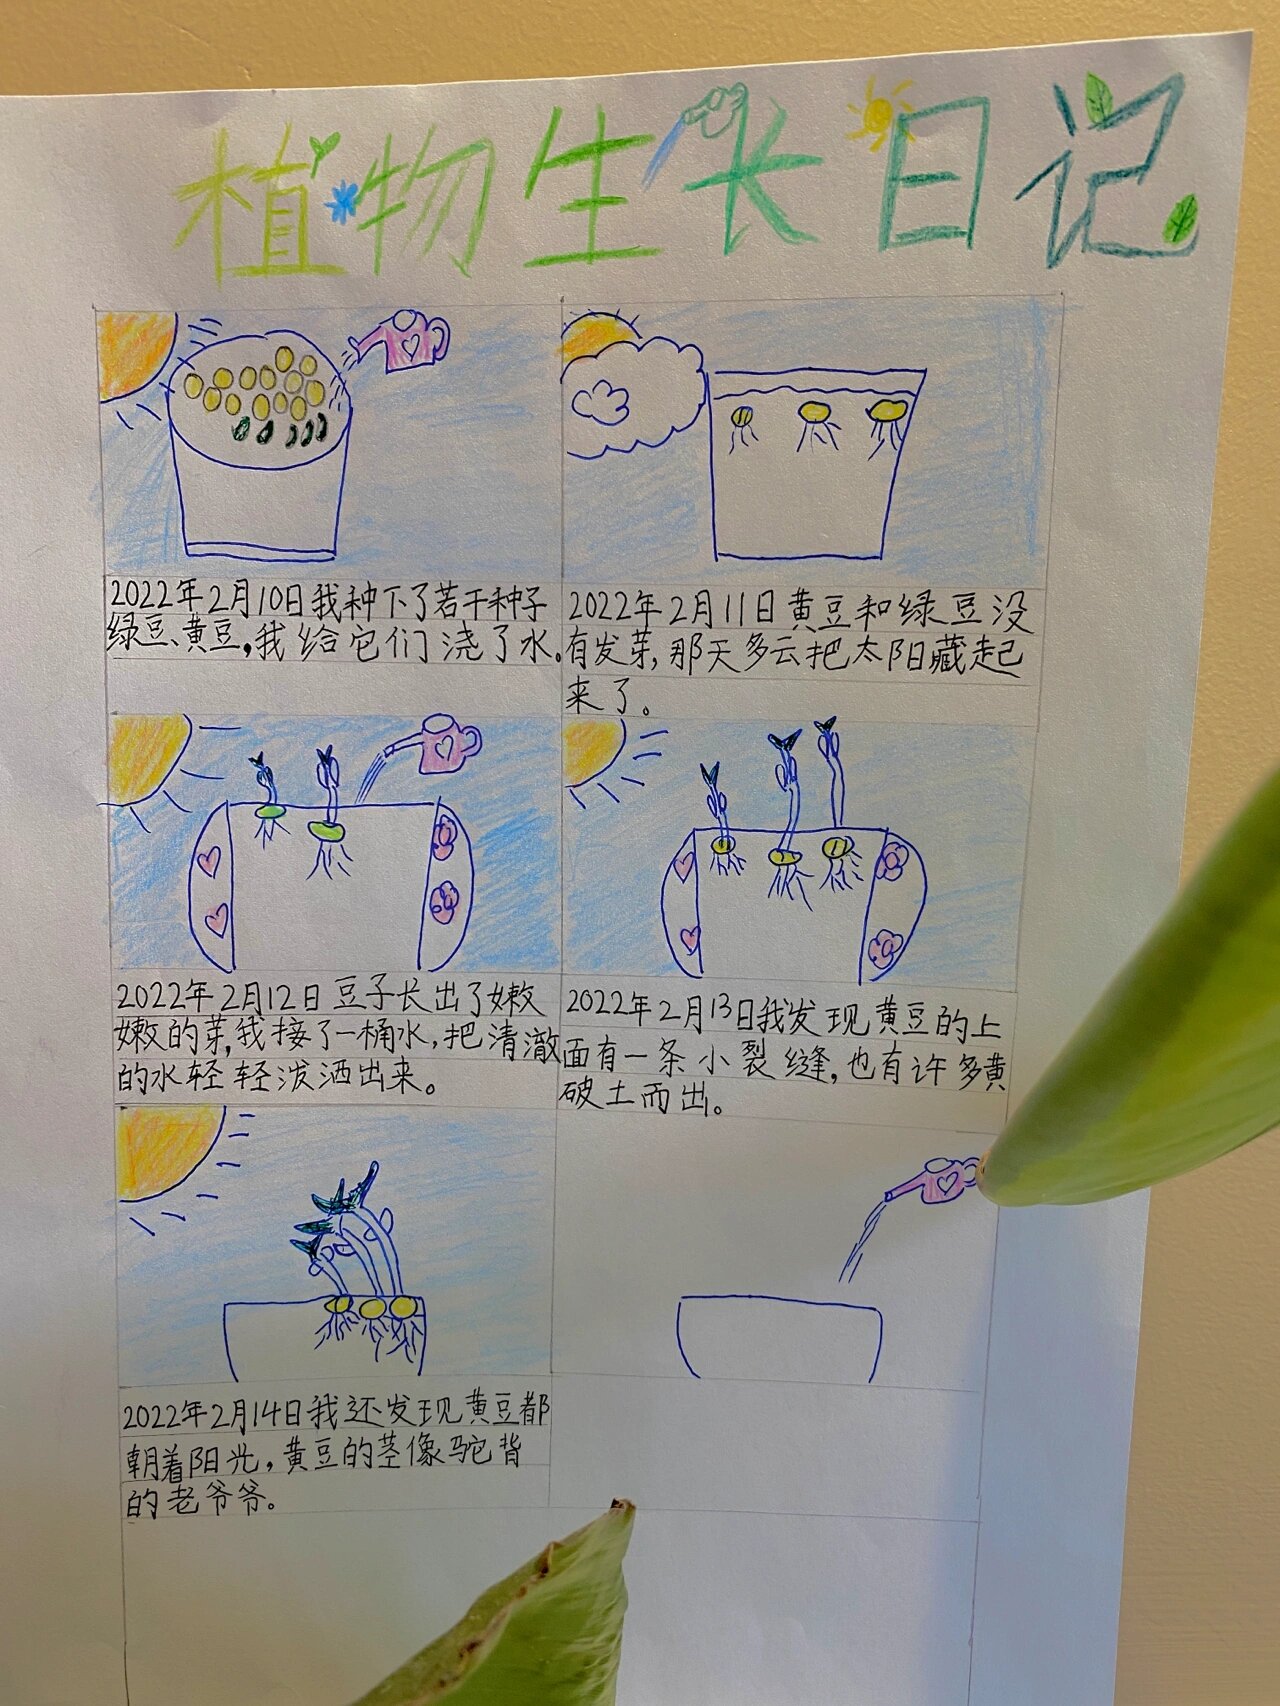 植物生长日记
2022年2月10日我种下了若干种子
绿豆、黄豆，我给它们浇了水。
2022年2月11日黄豆和绿豆没
有发芽，那天多云把太阳藏起
来了。
2022年2月12日豆子长出了嫩
嫩的芽，我接了一桶水，把清澈
的水轻轻泼洒出来。
2022年2月13日我发现黄豆的上
面有一条小裂缝，也有许多黄
破土而出。
2022年2月14日我还发现黄豆都
朝着阳光，黄豆的茎像驼背
的老爷爷。